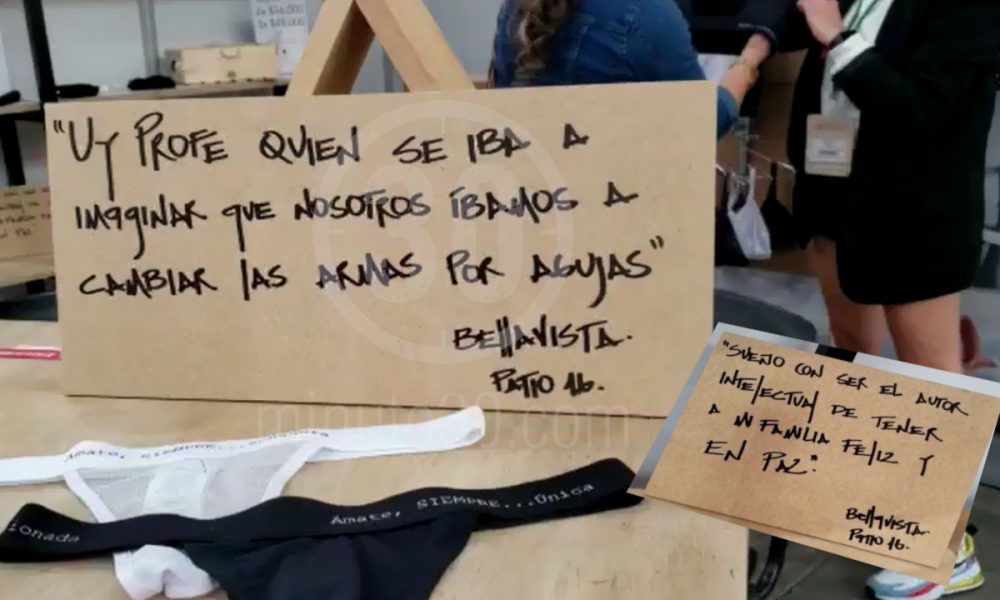 "UY PROFE QUIEN SE IBA A
IMAGINAR QUE NOSOTROS ÍBAMOS A
CAMBIAR LAS ARMAS POR AGUJAS"
BELLAVISTA.
PATIO 16.
"SUEÑO CON SER EL AUTOR
INTELECTUAL DE TENER
A MI FAMILIA FELIZ Y
EN PAZ".
BELLAVISTA.
PATIO 16.
30
minuto30.com
Ámate, SIEMPRE...
ionada Ámate, SIEMPRE...Única